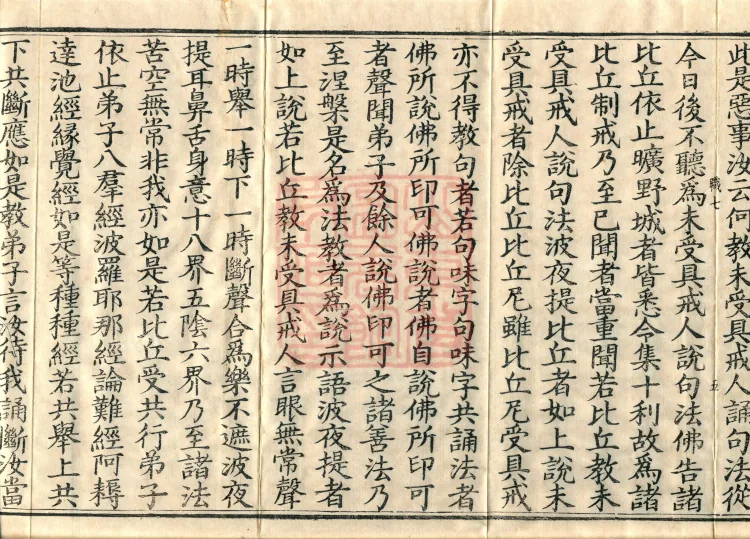 此是惡事汝云何教未受具戒人誦句法從
職七
五
今日後不聽為未受具戒人說句法佛告諸
比丘依止曠野城者皆悉令集十利故為諸
比丘制戒乃至已聞者當重聞若比丘教未
受具戒人說句法波夜提比丘者如上說未
受具戒者除比丘比丘尼雖比丘尼受具戒
亦不得教句者若句味字句味字共誦法者
佛所說佛所印可佛說者佛自說佛所印可
者聲聞弟子及餘人說佛印可之諸善法乃
至涅槃是名為法教者為說示語波夜提者
如上說若比丘教未受具戒人言眼無常聲
一時舉一時下一時斷聲合為樂不遮波夜
提耳鼻舌身意十八界五陰六界乃至諸法
苦空無常非我亦如是若比丘受共行弟子
依止弟子八羣經波羅耶那經論難經阿耨
達池經緣覺經如是等種種經若共舉上共
下共斷應如是教弟子言汝待我誦斷汝當